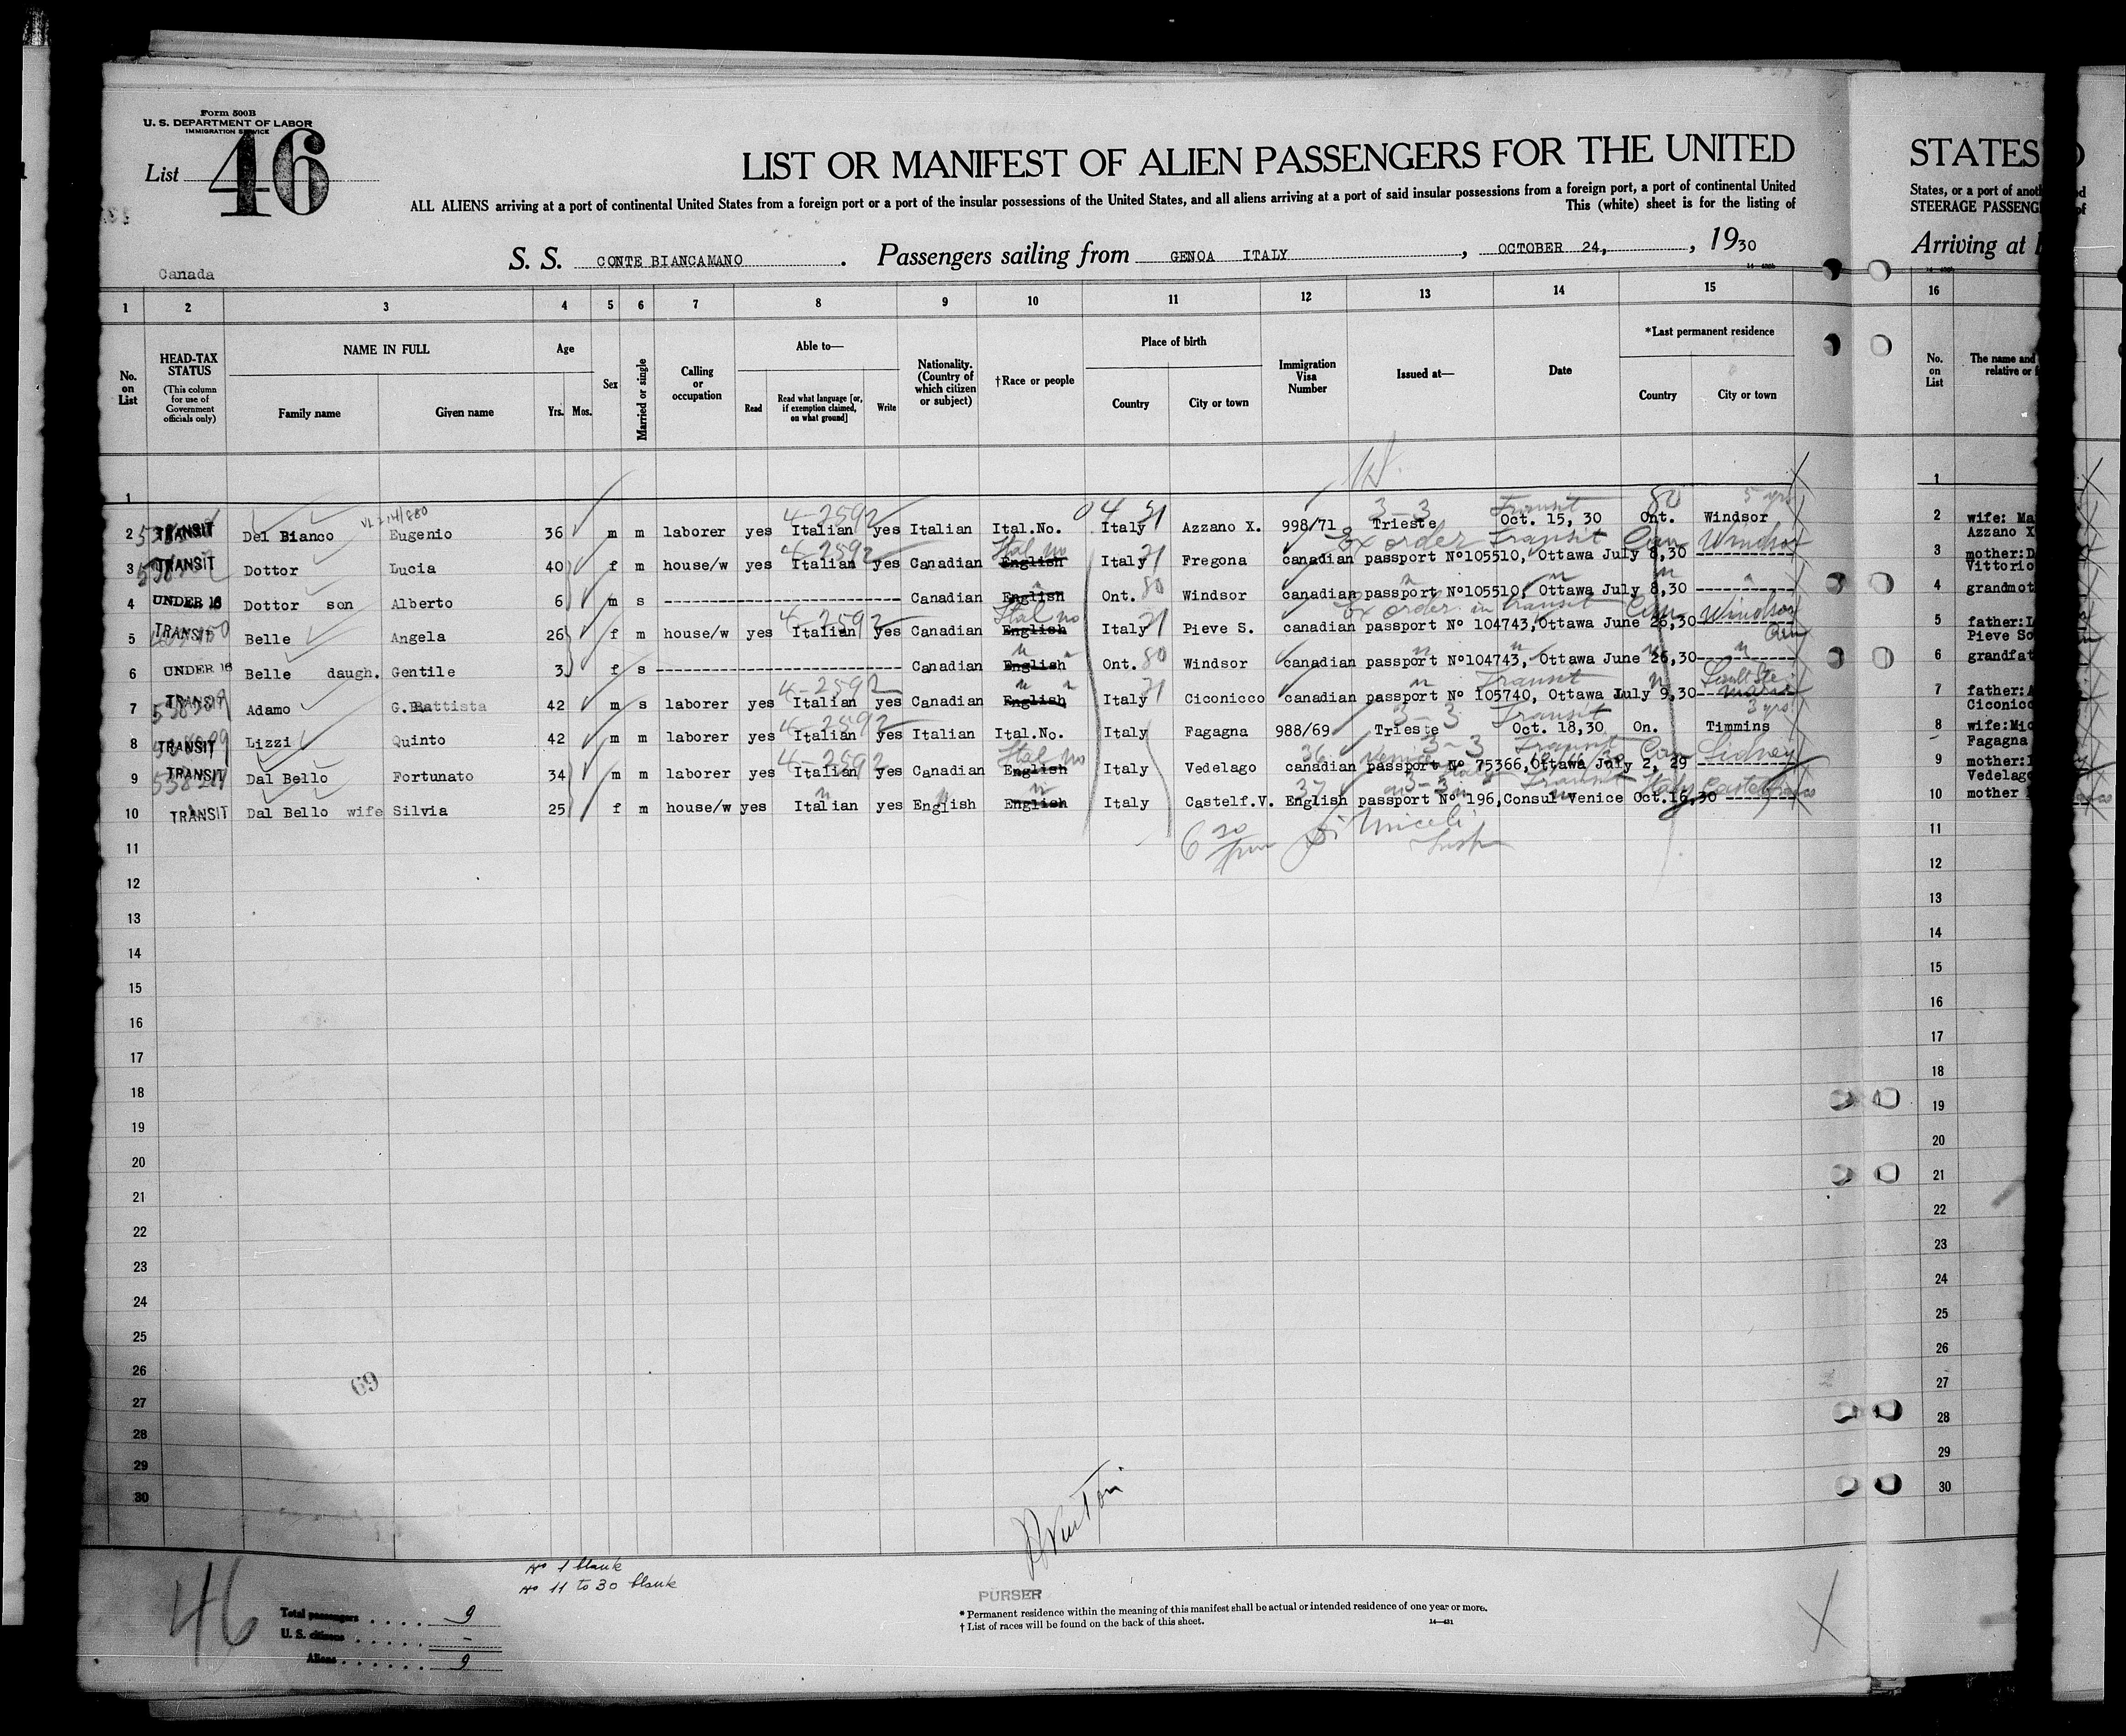 Form 500B
U. S. DEPARTMENT OF LABOR
IMMIGRATION SERVICE
List 46
LIST OR MANIFEST OF ALIEN PASSENGERS FOR THE UNITED
STATES
ALL ALIENS arriving at a port of continental United States from a foreign port or a port of the insular possessions of the United States, and all aliens arriving at a port of said insular possessions from a foreign port, a port of continental United
States, or a port of
This (white) sheet is for the listing of
STEERAGE
S. S. CONTE BIANCAMANO . Passengers sailing from GENOA ITALY , OCTOBER 24, , 1930
Arriving at
Canada
1 2 3 4 5 6 7 8 9 10 11 12 13 14 15 16
No. on List
HEAD-TAX STATUS
(This column for use of Government officials only)
NAME IN FULL
Family name Given name
Age
Yrs. Mos.
Sex
Married or single
Calling or occupation
Able to—
Read Read what language [or, if exemption claimed, on what ground] Write
Nationality. (Country of which citizen or subject)
†Race or people
Place of birth
Country City or town
Immigration Visa Number
Issued at—
Date
*Last permanent residence
Country City or town
No. on List
The name and
relative or
1 1
2 TRANSIT Del Bianco Eugenio 36 m m laborer yes 4-2592 Italian yes Italian Ital.No. Italy 21 Azzano X. 998/71 3-3 Trieste Transit Oct. 15, 30 80 Ont. 5 yrs Windsor 2 wife:
Azzano X
3 TRANSIT Dottor Lucia 40 f m house/w yes 4-2592 Italian yes Canadian Ital no English Italy 21 Fregona Ex order Transit Can Windsor canadian passport Nº105510, Ottawa July 8,30 3 mother:
Vittorio
4 UNDER 16 Dottor son Alberto 6 m s Canadian English Ont. 80 Windsor canadian passport Nº105510, Ottawa July 8,30 4
5 TRANSIT Belle Angela 26 f m house/w yes 4-2592 Italian yes Canadian Ital no English Italy 21 Pieve S. Ex order in transit Can Windsor canadian passport Nº 104743, Ottawa June 26,30 5 father:
Pieve
6 UNDER 16 Belle daugh. Gentile 3 f s Canadian English Ont. 80 Windsor canadian passport Nº104743, Ottawa June 26,30 6
7 TRANSIT Adamo G.Battista 42 m s laborer yes 4-2592 Italian yes Canadian English Italy 21 Ciconicco Transit Sault Ste canadian passport Nº 105740, Ottawa July 9,30 7 father:
8 TRANSIT Lizzi Quinto 42 m m laborer yes 4-2592 Italian yes Italian Ital.No. Italy Fagagna 988/69 3-3 Trieste Transit Oct. 18,30 On. 3 yrs Timmins 8 wife:
Fagagna
9 TRANSIT Dal Bello Fortunato 34 m m laborer yes 4-2592 Italian yes Canadian Ital no English Italy Vedelago 36 3-3 Transit Can Sidney canadian passport Nº 75366, Ottawa July 2, 29 9 mother:
Vedelago
10 TRANSIT Dal Bello wife Silvia 25 f m house/w yes Italian yes English English Italy Castelf.V. 37 3-3 Transit Italy English passport Nº 196, Consul Venice Oct.16,30 10 mother
11 11
12 12
13 13
14 14
15 15
16 16
17 17
18 18
19 19
20 20
21 21
22 22
23 23
24 24
25 25
26 26
27 27
28 28
29 29
30 30
69
46
Nº 1 blank
Nº 11 to 30 blank
Total passengers 9
U. S. citizens -
Aliens 9
PURSER
* Permanent residence within the meaning of this manifest shall be actual or intended residence of one year or more.
† List of races will be found on the back of this sheet.
14—421